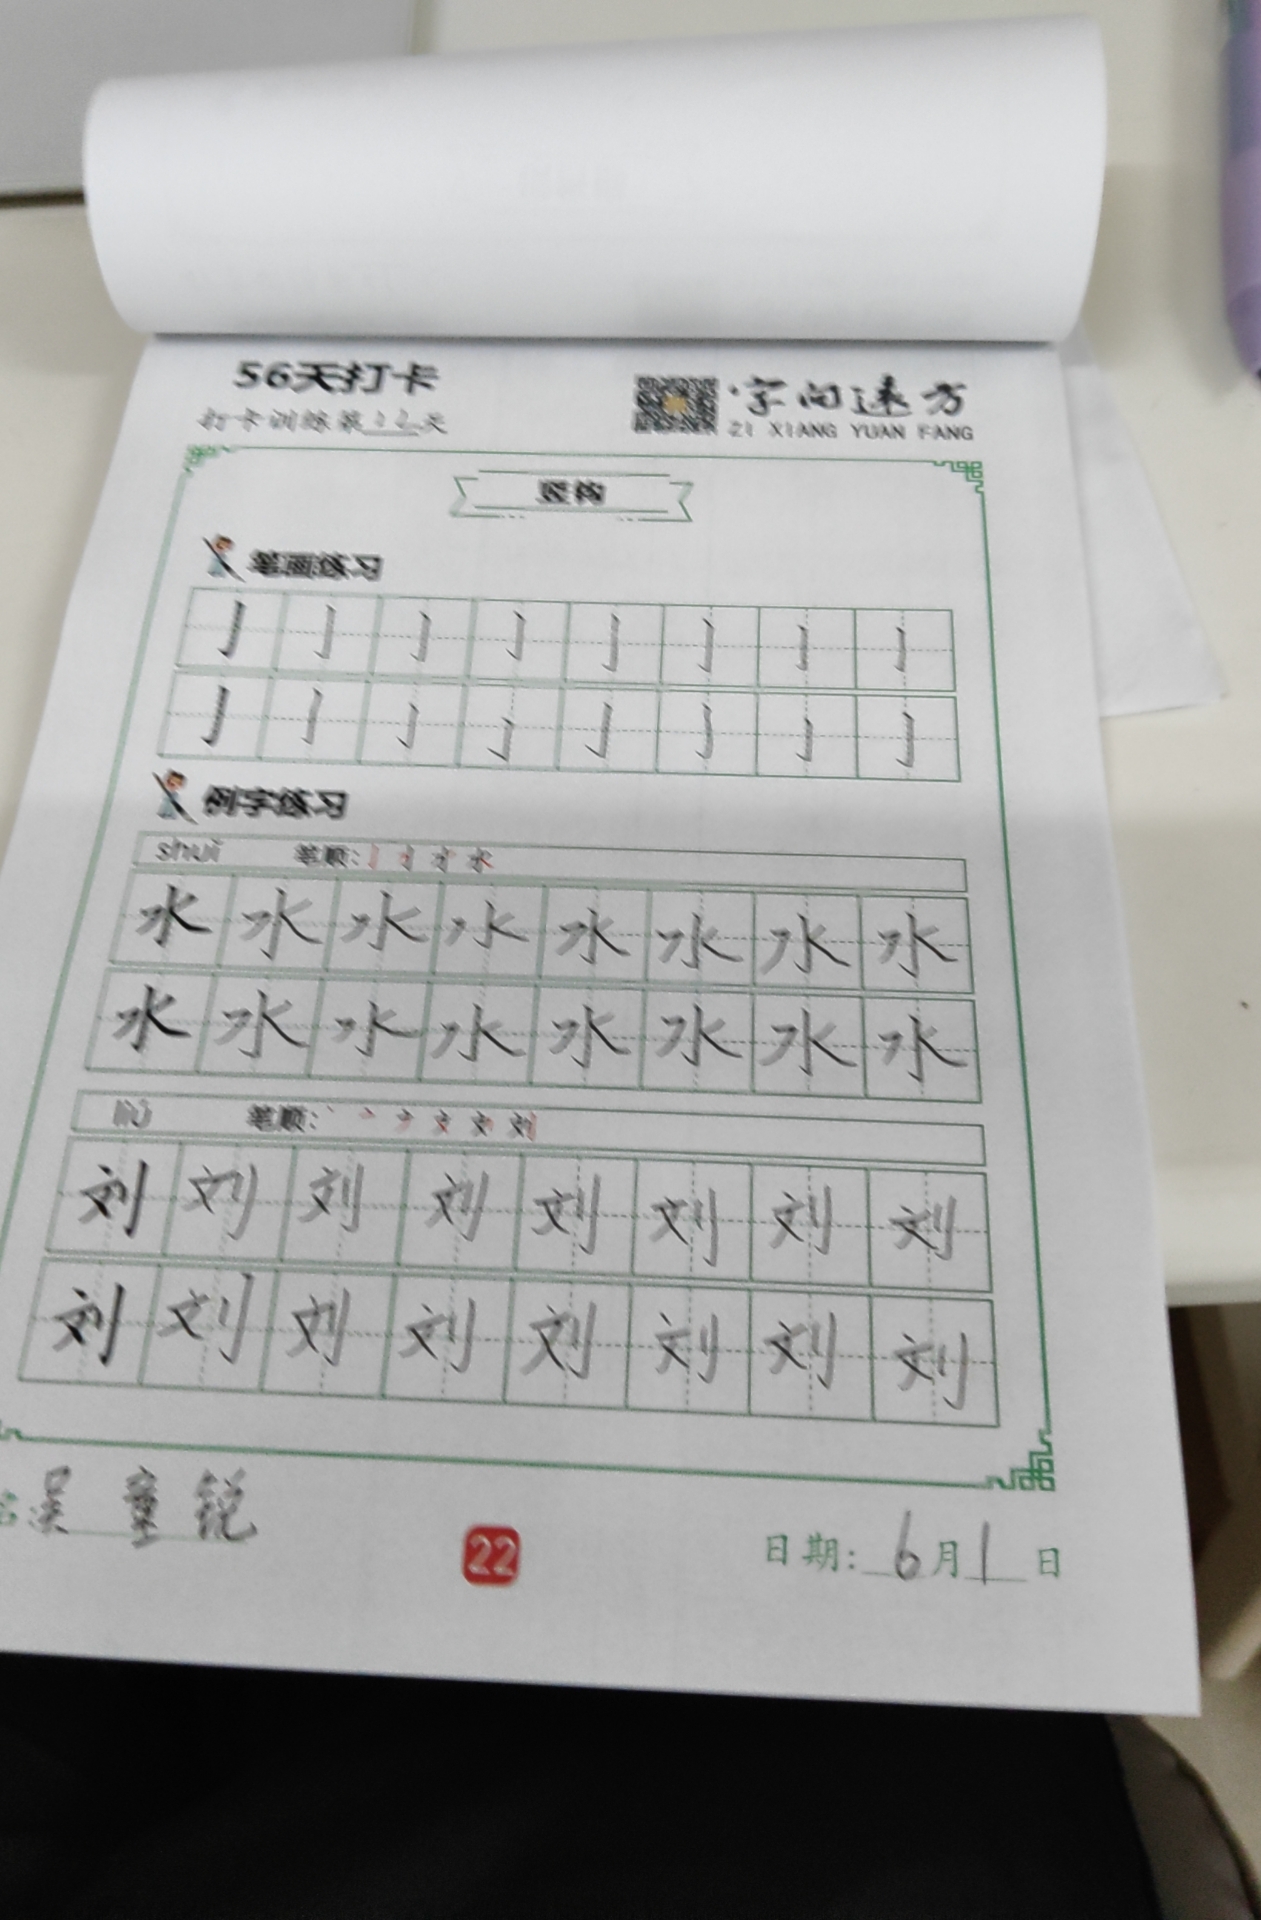 56天打卡
打卡训练第22天
字向远方
ZI XIANG YUAN FANG
竖钩
笔画练习
亅亅亅亅亅亅亅亅
亅亅亅亅亅亅亅亅
例字练习
shuǐ 笔顺：
水水水水水水水水
水水水水水水水水
liú 笔顺：
刘刘刘刘刘刘刘刘
刘刘刘刘刘刘刘刘
名 吴童锐
22
日期：6月1日